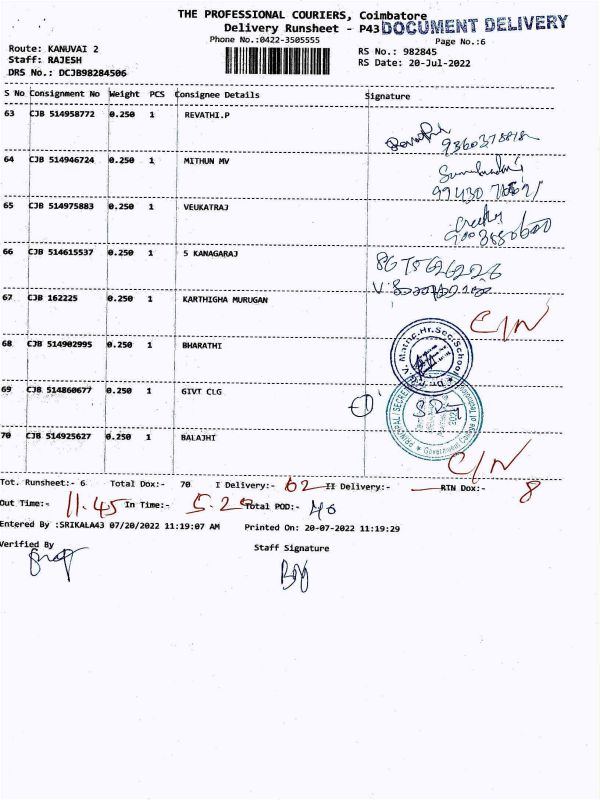 THE PROFESSIONAL COURIERS, Coimbatore
Delivery Runsheet - P43 DOCUMENT DELIVERY
Phone No.:0422-3505555
Page No.:6
Route: KANUVAI 2
RS No.: 982845
Staff: RAJESH
RS Date: 20-Jul-2022
DRS No.: DCJB98284506
S No Consignment No Weight PCS Consignee Details Signature
63 CJB 514958772 0.250 1 REVATHI.P
64 CJB 514946724 0.250 1 MITHUN MV
65 CJB 514975883 0.250 1 VEUKATRAJ
66 CJB 514615537 0.250 1 S KANAGARAJ
67 CJB 162225 0.250 1 KARTHIGHA MURUGAN
C/N
68 CJB 514902995 0.250 1 BHARATHI
69 CJB 514860677 0.250 1 GIVT CLG
70 CJB 514925627 0.250 1 BALAJHI
C/N
Tot. Runsheet:- 6 Total Dox:- 70 I Delivery:- 62 II Delivery:- — RTN Dox:- 8
Out Time:- 11.45 In Time:- Total POD:-
Entered By :SRIKALA43 07/20/2022 11:19:07 AM Printed On: 20-07-2022 11:19:29
Verified By
Staff Signature